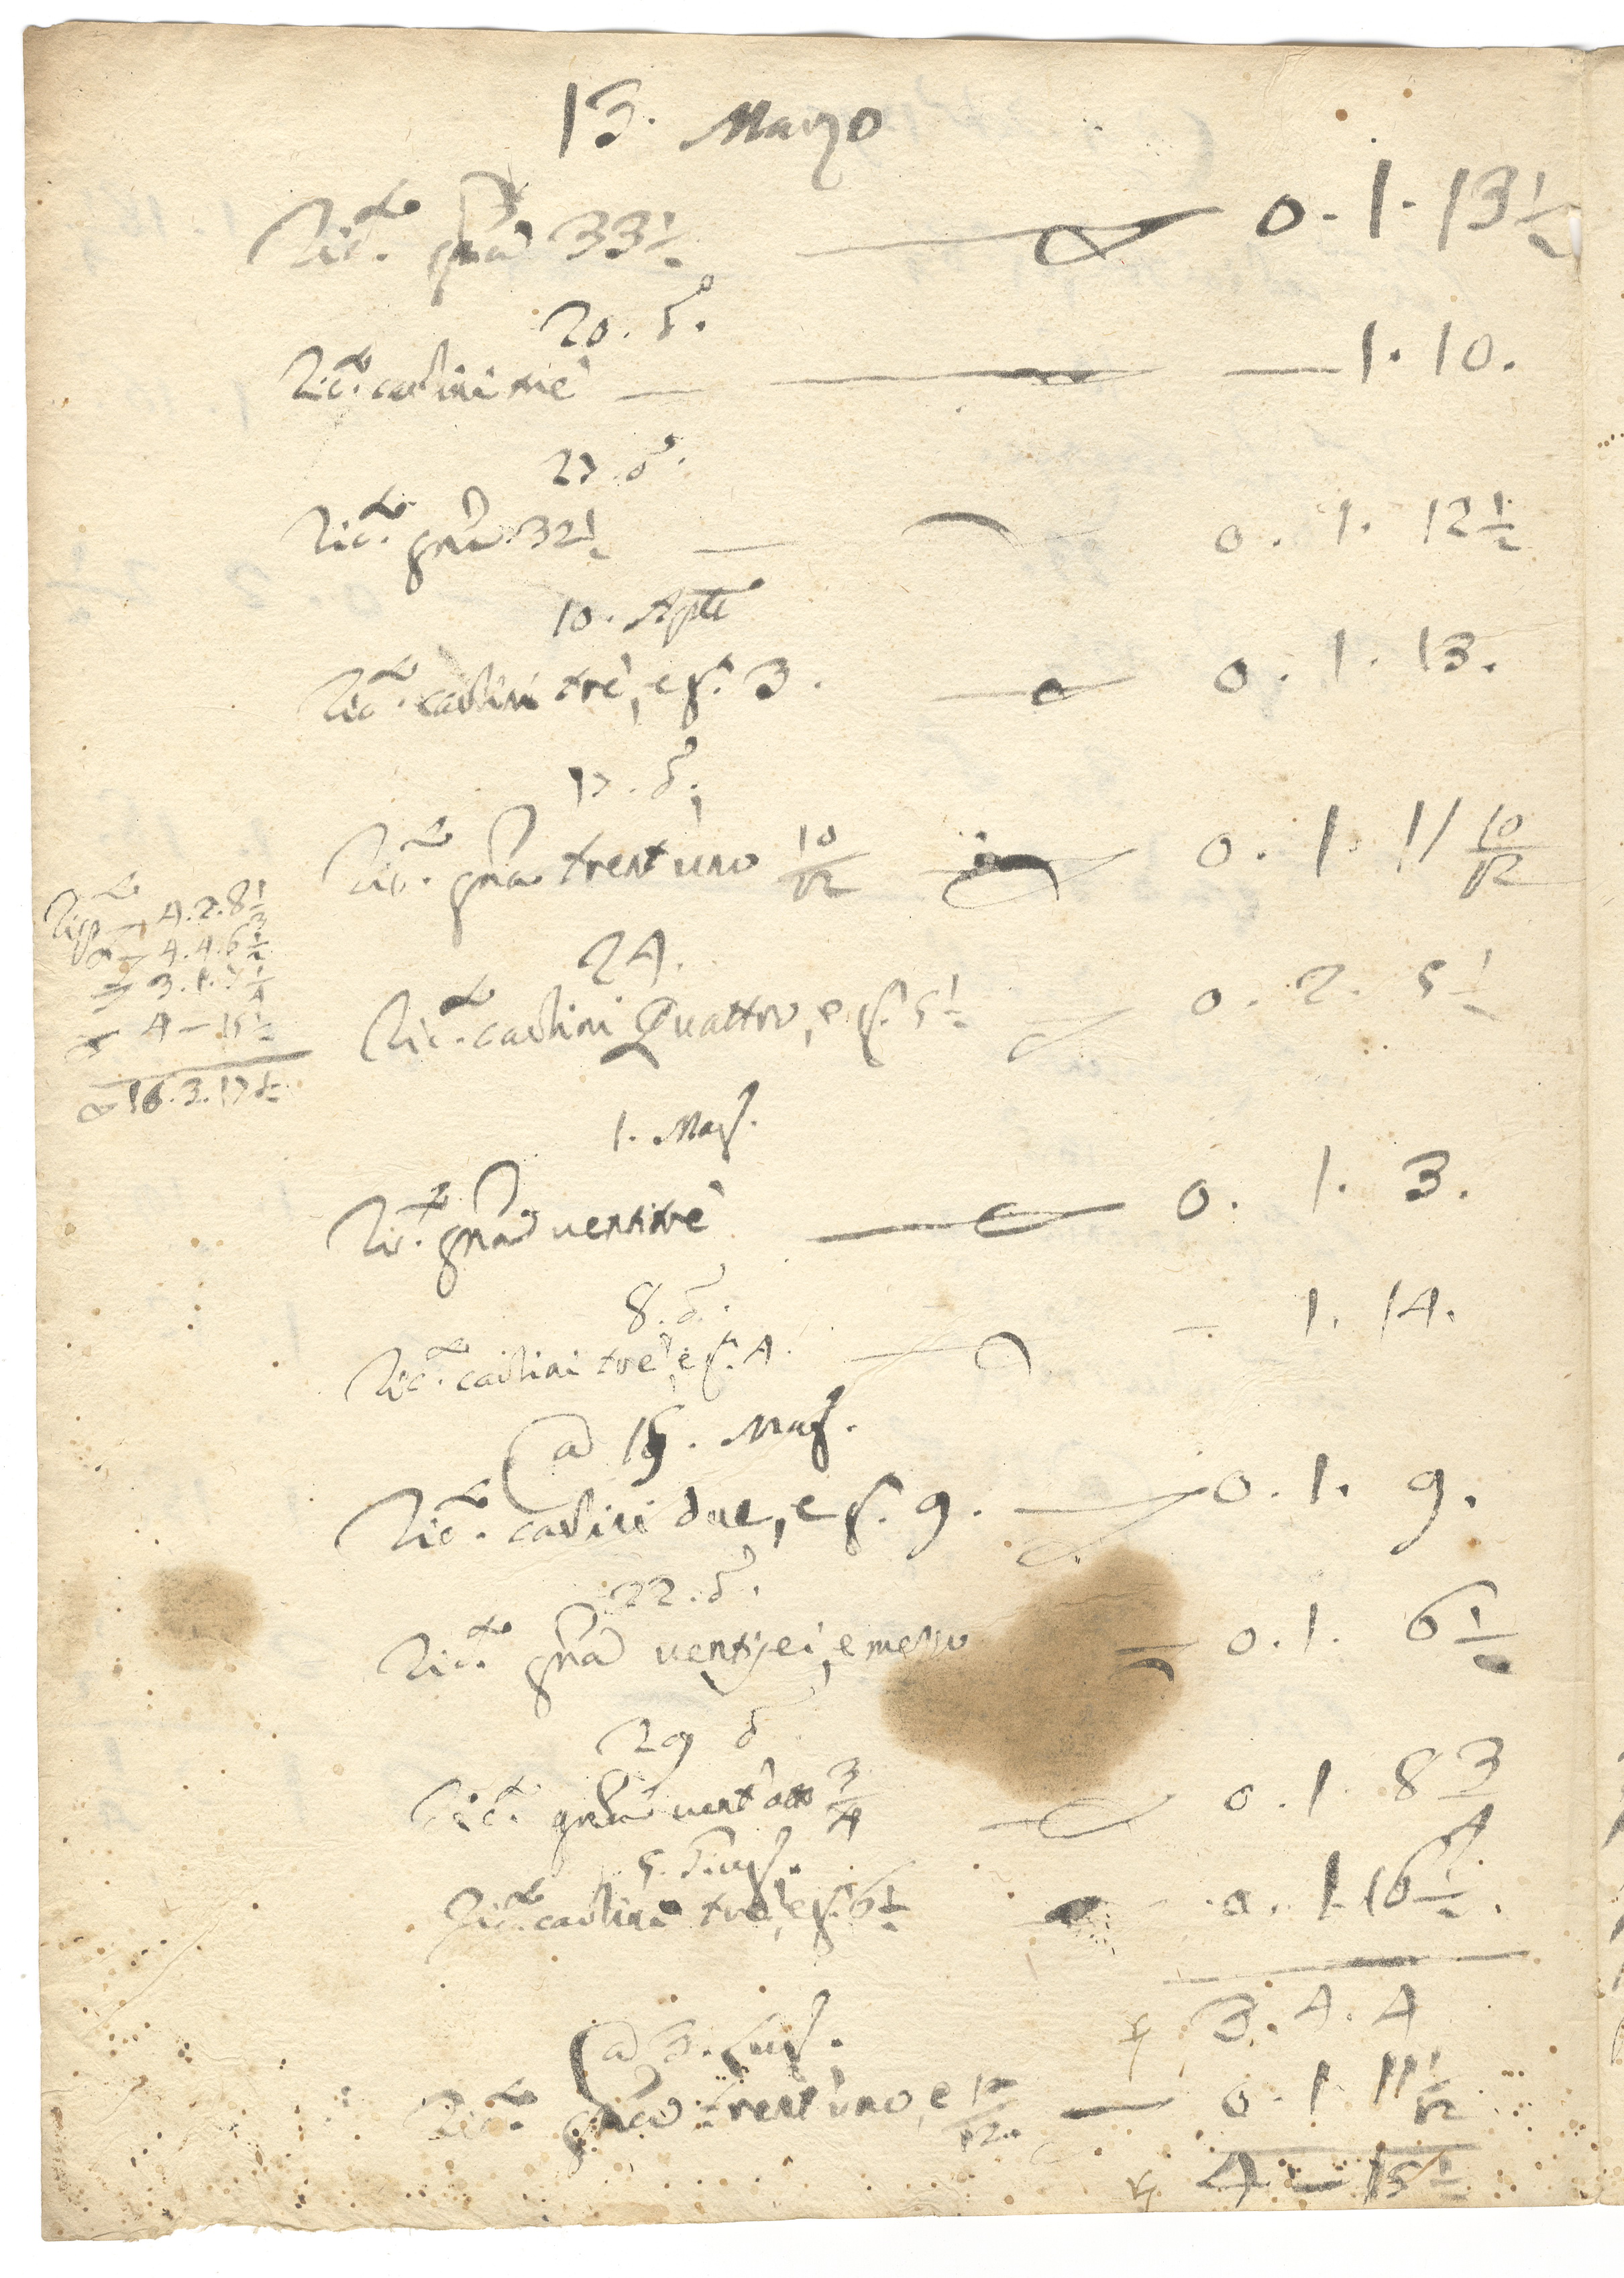 13. Marzo
Ric.to grna 33 1/2 — 0. 1. 13 1/2
20. d.o
Ric.to carlini tre — 1. 10.
27. d.o
Ric.to grna 32 1/2 — 0. 1. 12 1/2
10. Aple
Ric.to carlini tre, e g. 3. — 0. 1. 13.
17. d.o
Ric.to grna trent'uno 10/12 — 0. 1. 11 10/12
24.
Ric.to carlini Quattro, e g. 5 1/2 — 0. 2. 5 1/2
1. Mag.
Ric.to grna ventitre — 0. 1. 3.
8. d.o
Ric.to carlini tre, e g. 4. — 1. 14.
a 15. Mag.
Ric.to carlini due, e g. 9. — 0. 1. 9.
22. d.o
Ric.to grna ventisei, e mezzo — 0. 1. 6 1/2
29 d
Ric.to grna vent'otto 3/4 — 0. 1. 8 3/4
5. Giug.
Ric.to carlini tre, e g. 6 1/2 — 0. 1. 16 1/2.
3. 4. 4
a 3. Lug.
Ric.to grna trent'uno, e 10/12 — 0. 1. 11 1/12
4 — 15 1/2
4. 2. 8 1/3
4. 4. 6 1/2
3. 1. 7 1/4
4 — 15 1/2
16. 3. 17 1/2